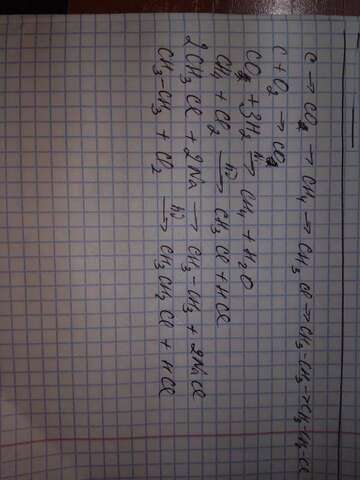 C → CO → CH₄ → CH₃Cl → CH₃-CH₃ → CH₃-CH₂-Cl
C + O₂ → CO
CO + 3H₂ → CH₄ + H₂O
CH₄ + Cl₂ hν→ CH₃Cl + HCl
2CH₃Cl + 2Na → CH₃-CH₃ + 2NaCl
CH₃-CH₃ + Cl₂ hν→ CH₃CH₂Cl + HCl